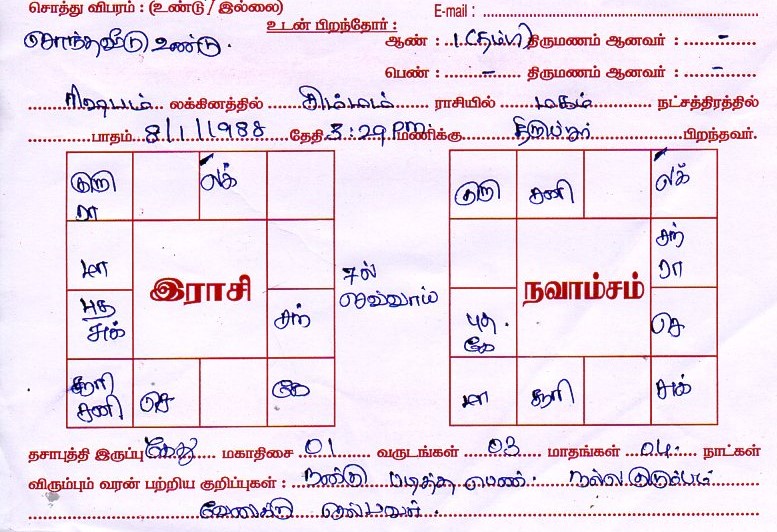 சொத்து விபரம் : (உண்டு / இல்லை) E-mail :
உடன் பிறந்தோர் :
சொந்தவீடு உண்டு. ஆண் : 1 (தம்பி) திருமணம் ஆனவர் : -
பெண் : - திருமணம் ஆனவர் : -
ரிஷபம் லக்கினத்தில் சிம்மம் ராசியில் மகம் நட்சத்திரத்தில்
பாதம் 8/1/1988 தேதி 3:29 PM மணிக்கு திருப்பூர் பிறந்தவர்.
குரு லக் குரு சனி லக்
ரா
மா இராசி சந் நவாம்சம் சந்
ரா
7ல்
செவ்வாய்
புத சுக் புத கே செ
சூரி சனி செ கே மா சூரி சுக்
தசாபுத்தி இருப்பு கேது மகாதிசை 01 வருடங்கள் 03 மாதங்கள் 04 நாட்கள்
விரும்பும் வரன் பற்றிய குறிப்புகள் : நன்கு படித்த பெண். நல்ல குடும்பம்
வேலைக்கு செல்பவள்.